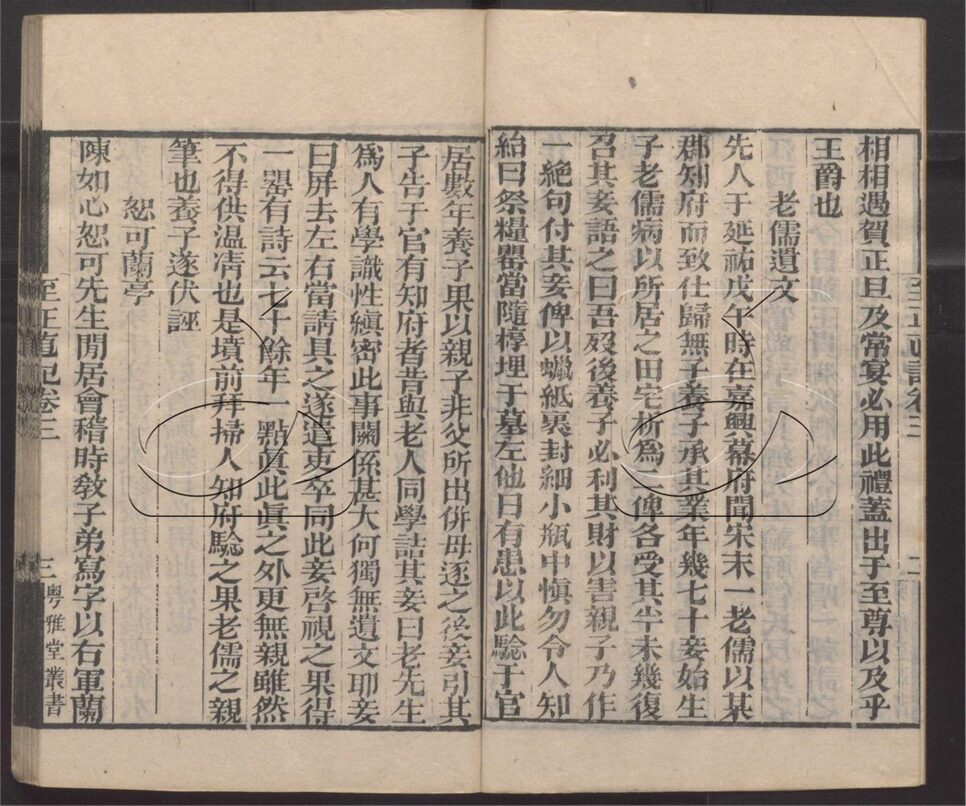 相相遇賀正旦及常宴必用此禮蓋出于至尊以及乎
王爵也
老儒遺文
先人于延祐戊午時在嘉興幕府聞宋末一老儒以某
郡知府而致仕歸無子養子承其業年幾七十妾始生
子老儒病以所居之田宅析爲二俾各受其半未幾復
召其妾語之曰吾歿後養子必利其財以害親子乃作
一絶句付其妾俾以蠟紙裹封細小瓶中愼勿令人知
紿曰祭糧罌當隨槨埋于墓左他日有患以此驗于官
居數年養子果以親子非父所出倂母逐之後妾引其
子告于官有知府者昔與老人同學詰其妾曰老先生
爲人有學識性縝密此事關係甚大何獨無遺文耶妾
曰屏去左右當請具之遂遣吏卒同此妾啓視之果得
一罌有詩云七十餘年一點眞此眞之外更無親雖然
不得供温凊也是墳前拜掃人知府驗之果老儒之親
筆也養子遂伏誣
恕可蘭亭
陳如心恕可先生閒居會稽時敎子弟寫字以右軍蘭
至正直記卷三
三
粤雅堂叢書